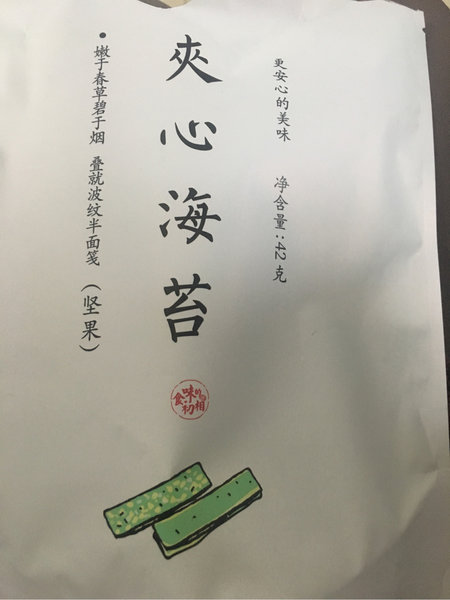 更安心的美味 净含量:42克
夾心海苔
嫩于春草碧于烟 叠就波纹半面笺(坚果)
食味的初相